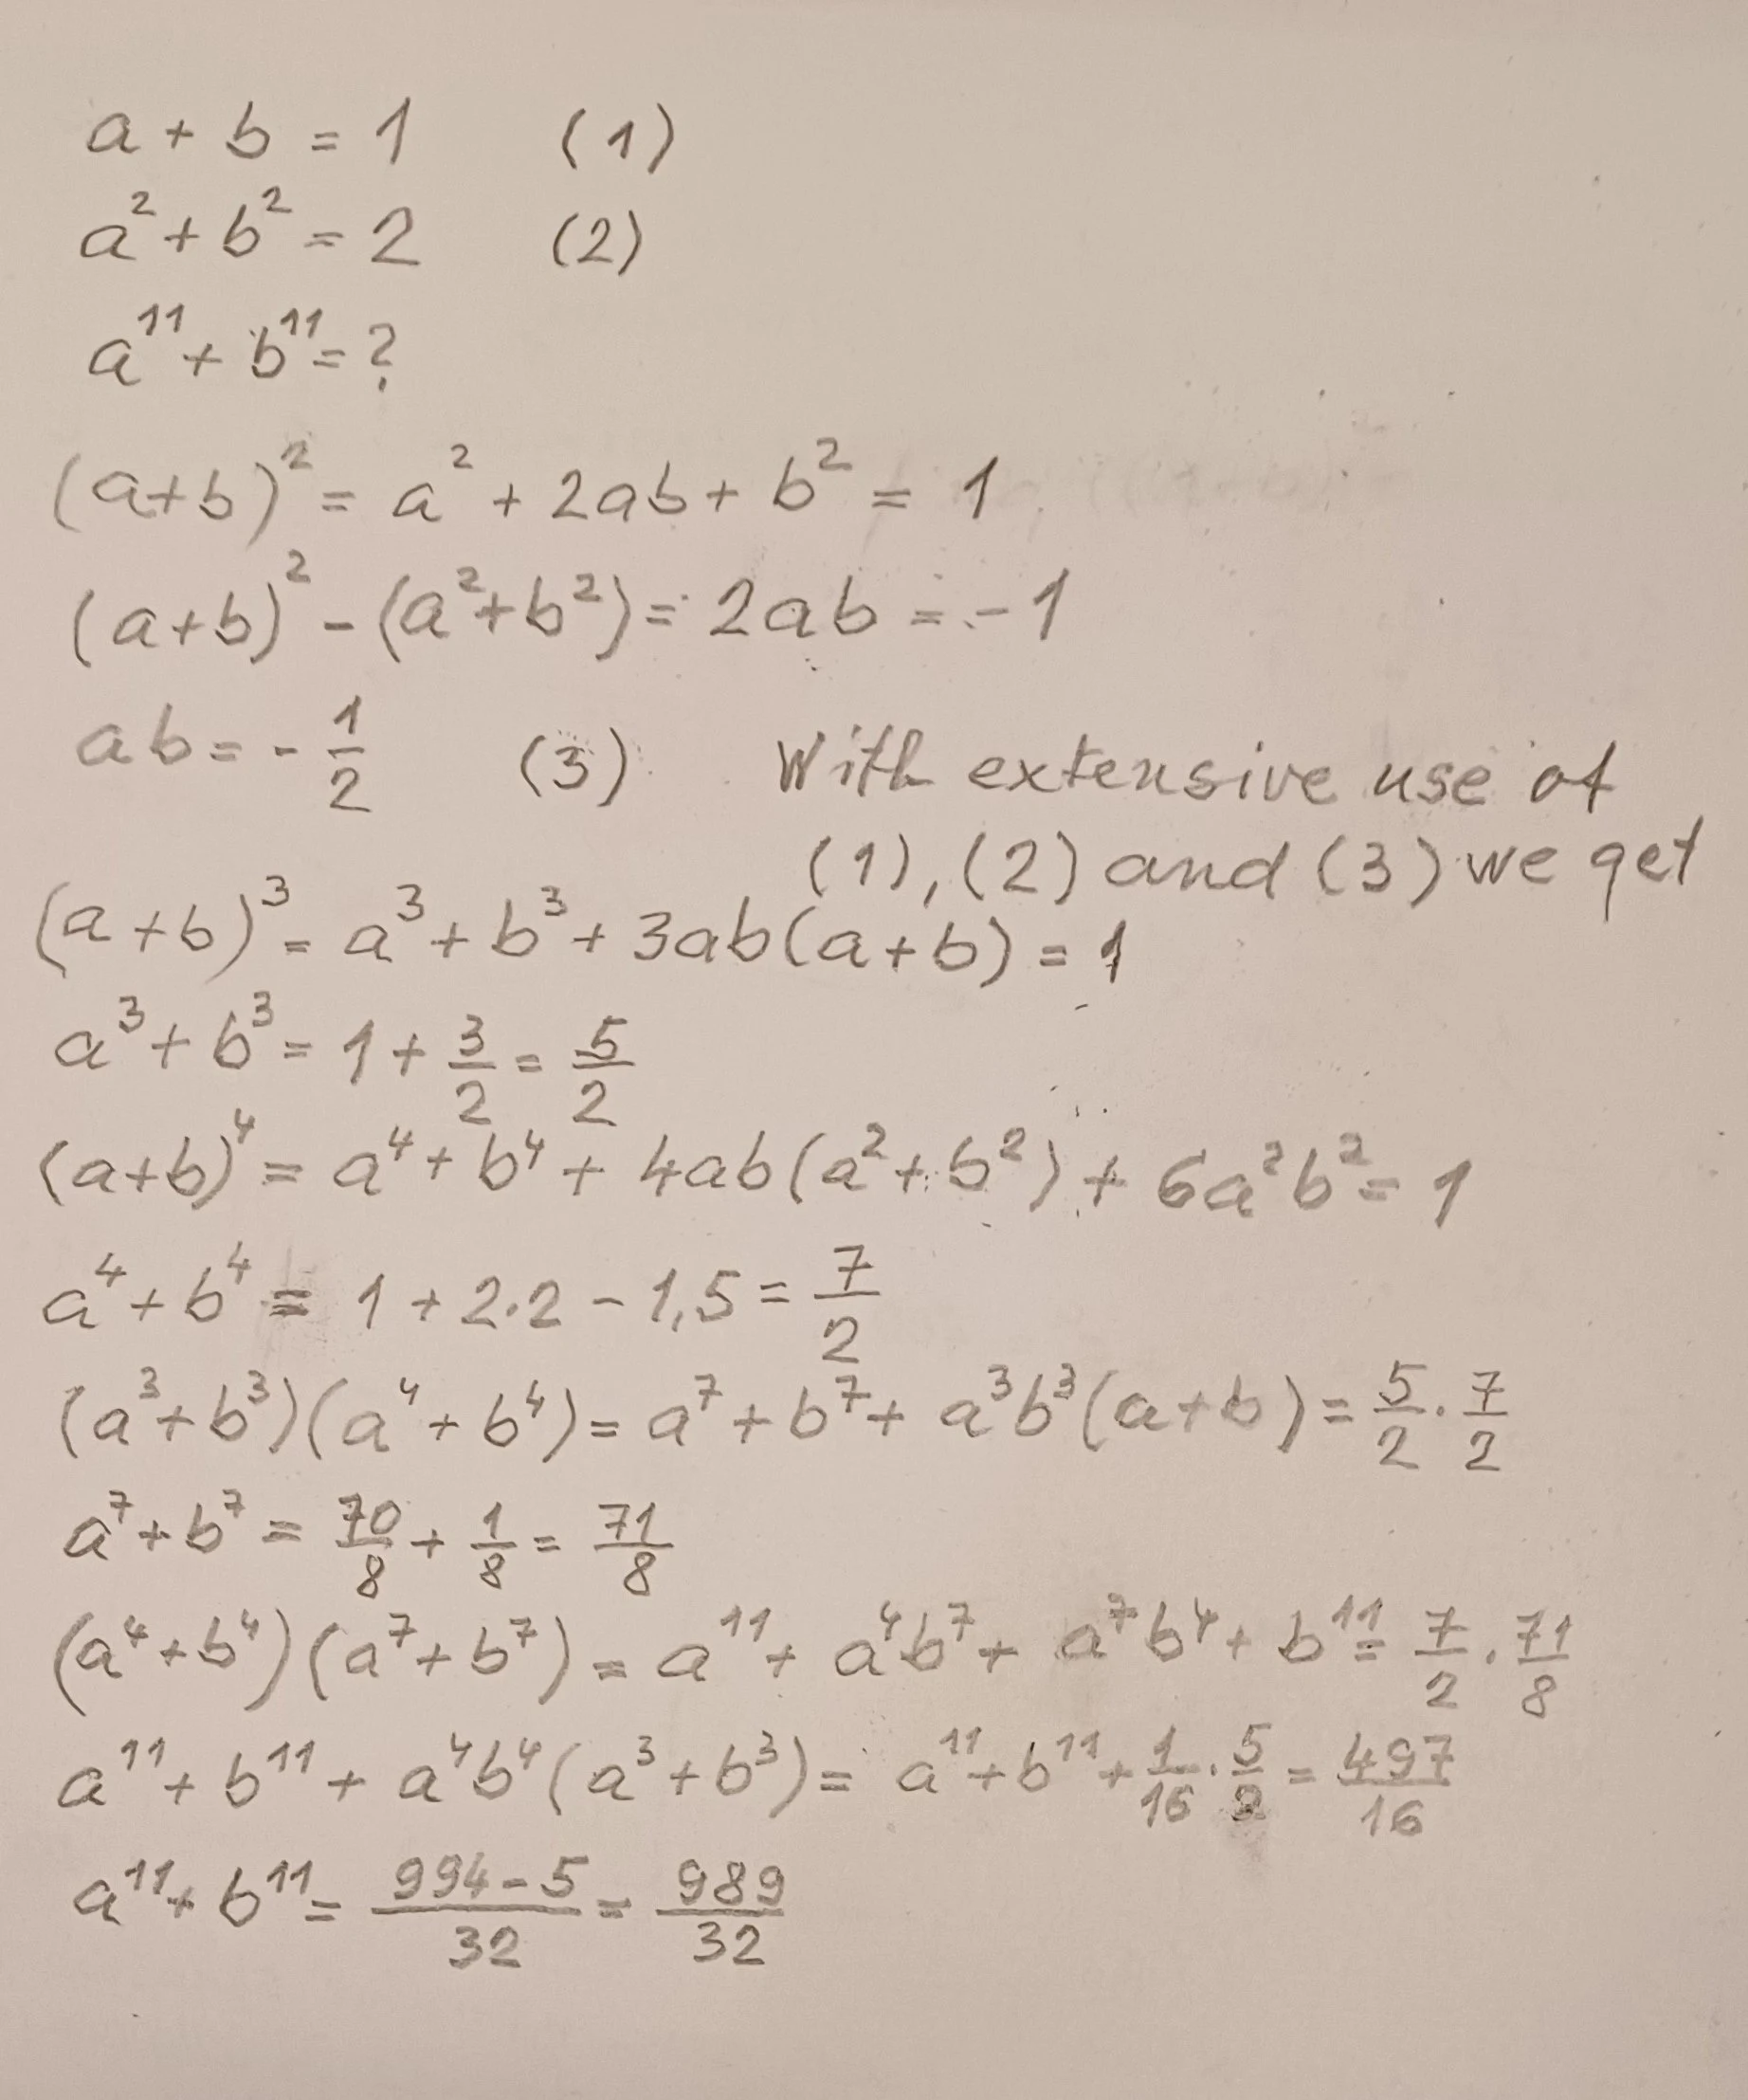 a + b = 1 (1)
a² + b² = 2 (2)
a¹¹ + b¹¹ = ?
(a+b)² = a² + 2ab + b² = 1
(a+b)² - (a²+b²) = 2ab = -1
ab = - 1/2 (3) With extensive use of
(1), (2) and (3) we get
(a+b)³ = a³ + b³ + 3ab(a+b) = 1
a³ + b³ = 1 + 3/2 = 5/2
(a+b)⁴ = a⁴ + b⁴ + 4ab(a² + b²) + 6a²b² = 1
a⁴ + b⁴ = 1 + 2·2 - 1,5 = 7/2
(a³+b³)(a⁴+b⁴) = a⁷ + b⁷ + a³b³(a+b) = 5/2 · 7/2
a⁷ + b⁷ = 70/8 + 1/8 = 71/8
(a⁴+b⁴)(a⁷+b⁷) = a¹¹ + a⁴b⁷ + a⁷b⁴ + b¹¹ = 7/2 · 71/8
a¹¹ + b¹¹ + a⁴b⁴(a³+b³) = a¹¹+b¹¹ + 1/16 · 5/2 = 497/16
a¹¹ + b¹¹ = (994-5)/32 = 989/32